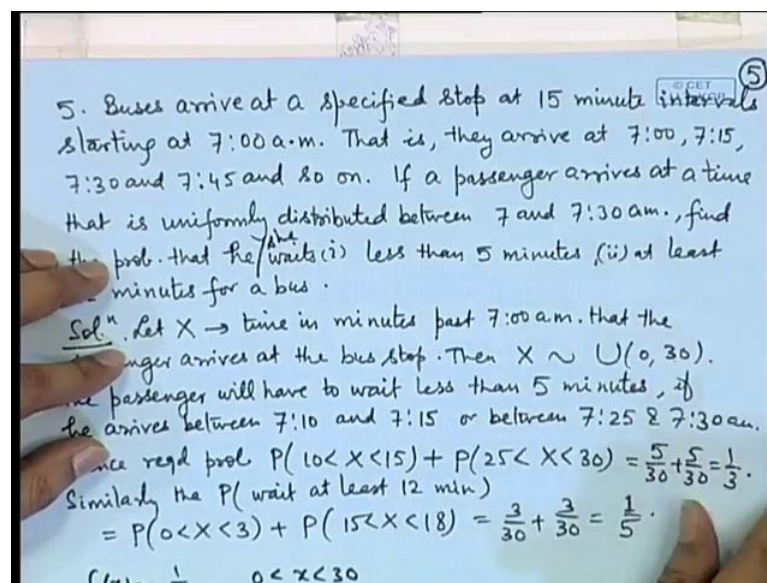 5
© CET
5. Buses arrive at a specified stop at 15 minute intervals
starting at 7:00 a.m. That is, they arrive at 7:00, 7:15,
7:30 and 7:45 and so on. If a passenger arrives at a time
that is uniformly distributed between 7 and 7:30 am., find
the prob. that he/she waits (i) less than 5 minutes, (ii) at least
minutes for a bus.
Solⁿ. Let X → time in minutes past 7:00 a.m. that the
arrives at the bus stop. Then X ~ U(0, 30).
passenger will have to wait less than 5 minutes, if
he arrives between 7:10 and 7:15 or between 7:25 & 7:30 am.
reqd prob P(10<X<15) + P(25<X<30) = 5/30 + 5/30 = 1/3.
Similarly the P(wait at least 12 min)
= P(0<X<3) + P(15<X<18) = 3/30 + 3/30 = 1/5.
0<x<30